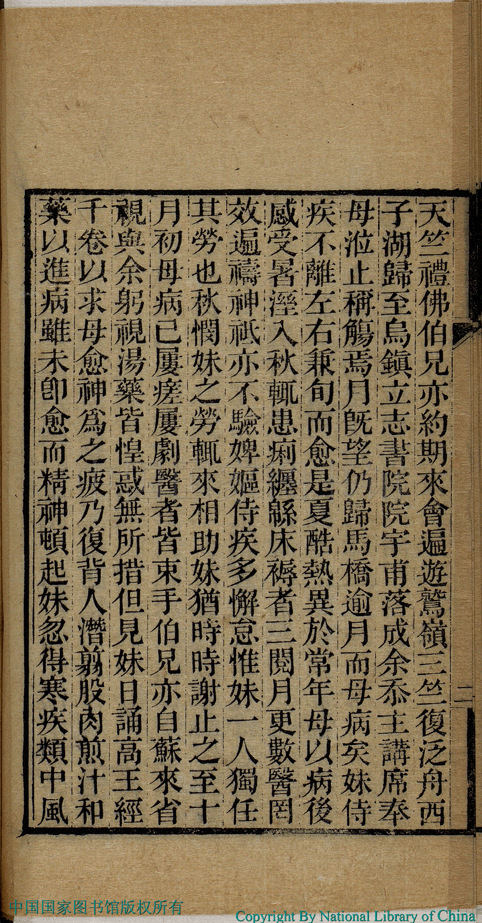 天竺禮佛伯兄亦約期來會遍遊鷲嶺三竺復泛舟西
子湖歸至烏鎮立志書院院宇甫落成余忝主講席奉
母涖止稱觴焉月旣望仍歸馬橋逾月而母病矣妹侍
疾不離左右兼旬而愈是夏酷熱異於常年母以病後
感受暑溼入秋輒患痢纏緜床褥者三閱月更數醫罔
效遍禱神祇亦不驗婢嫗侍疾多懈怠惟妹一人獨任
其勞也秋憫妹之勞輒來相助妹猶時時謝止之至十
月初母病已屢瘥屢劇醫者皆束手伯兄亦自蘇來省
視與余躬視湯藥皆惶惑無所措但見妹日誦高王經
千卷以求母愈神爲之疲乃復背人潛翦股肉煎汁和
藥以進病雖未卽愈而精神頓起妹忽得寒疾類中風
二
中国国家图书馆版权所有
Copyright By National Library of China